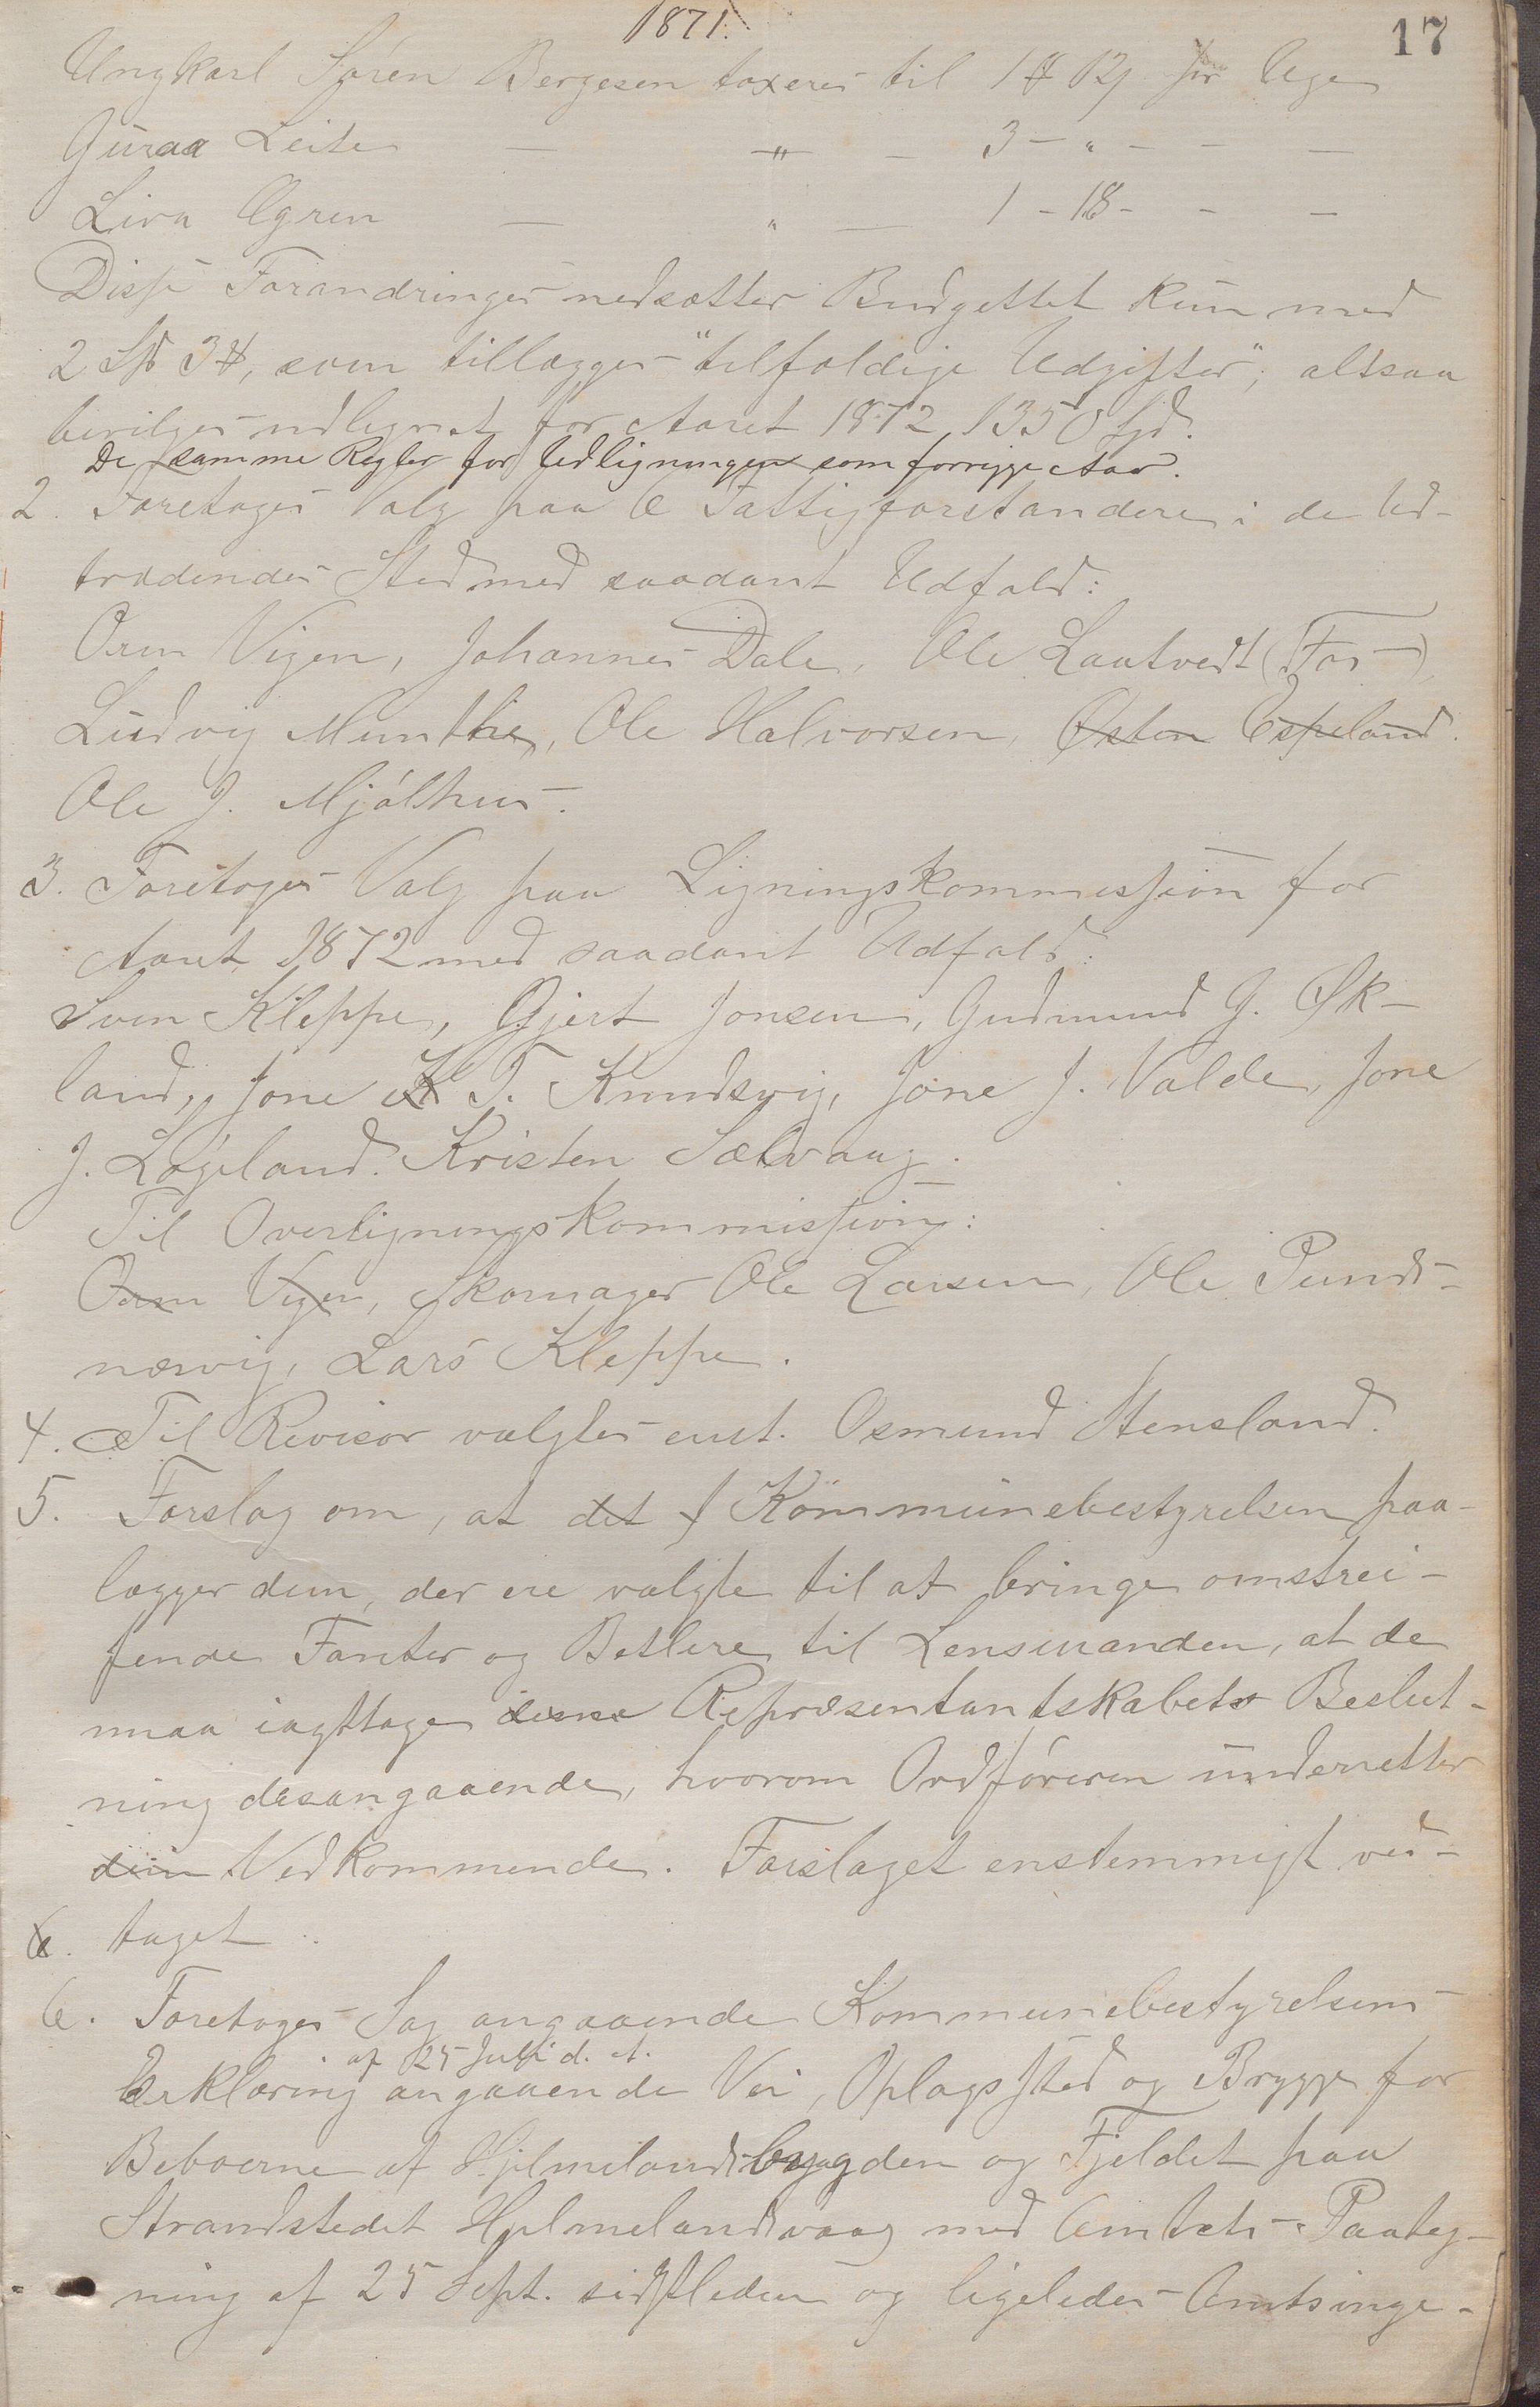 1871.
17
Ungkarl Sören Bergesen taxeres til 1 # 12 ſ for Uge
Guraa Leite — " — 3 - " - - —
Liva Ogren — " — 1 - 18 - - —
Disse Forandringer nedsætter Budgettet kun med
2 Spd 3 #, som tillægges "tilfældige Udgifter", altsaa
bevilges udlignet for Aaret 1872 1350 Spd.
De samme Regler for Udligningen som forrige Aar.
2. Foretoges Valg paa 6 Fattigforstandere i de Ud-
trædendes Sted med saadant Udfald:
Orm Vigen, Johannes Dale, Ole Laatvedt (For-)
Ludvig Munthe, Ole Halvorsen, Østen Espeland.
Ole J. Mjölhus.
3. Foretoges Valg paa Ligningskommission for
Aaret 1872 med saadant Udfald:
Sven Kleppe, Gjert Jonsen, Gudmund G. Øk-
land, Jone K T. Knudsvig, Jone J. Valde, Jone
J. Lögeland. Kristen Sælvaag.
Til Overligningskommission:
Orm Vigen, Skomager Ole Larsen, Ole Punds-
næsvig, Lars Kleppe.
4. Til Revisor valgtes enst. Osmund Stensland.
5. Forslag om, at det f Kommunebestyrelsen paa-
lægger dem, der ere valgte til at bringe omstrei-
fende Fanter og Betlere til Lensmanden, at de
maa iagttage denne Repræsentantskabets Beslut-
ning desangaaende, hvorom Ordföreren underretter
dem Vedkommende. Forslaget enstemmigt ved-
6. taget.
6. Foretoges Sag angaaende Kommunebestyrelsens
af 25 Juli d. A.
Erklæring angaaende Vei, Oplagssted og Brygge for
Beboerne af Hjelmelandsbygden og Fjeldet paa
Strandstedet Hjelmelandsvaag med Amtets Paateg-
ning af 25 Sept. sidstleden og ligeledes Amtsinge-